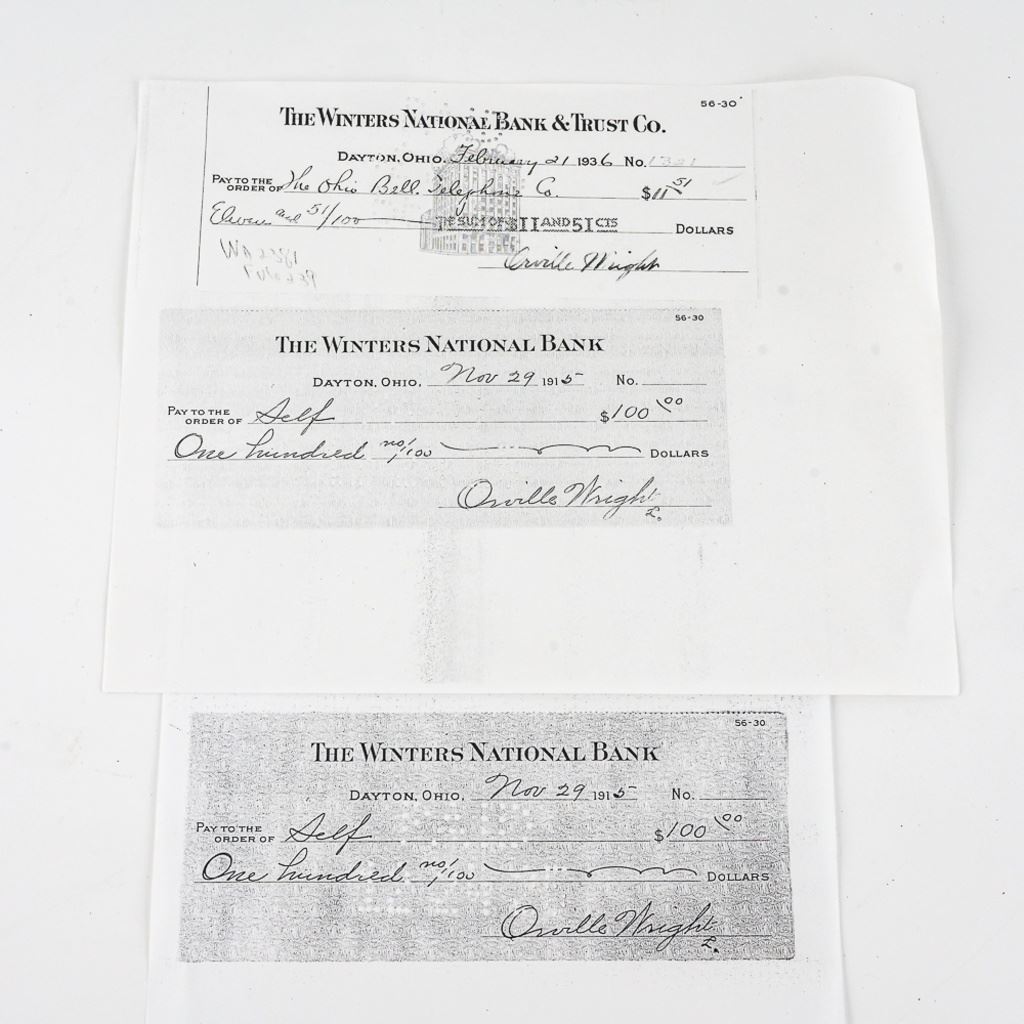 56-30
THE WINTERS NATIONAL BANK & TRUST CO.
DAYTON, OHIO, February 21 1936 No.
PAY TO THE ORDER OF The Ohio Bell Telephone Co. $11 51
Eleven and 51/100 THE SUM OF $11 AND 51 CTS DOLLARS
Orville Wright
56-30
THE WINTERS NATIONAL BANK
DAYTON, OHIO, Nov 29 1915 No.
PAY TO THE ORDER OF Self $100 00
One hundred no/100 DOLLARS
Orville Wright
56-30
THE WINTERS NATIONAL BANK
DAYTON, OHIO, Nov 29 1915 No.
PAY TO THE ORDER OF Self $100 00
One hundred no/100 DOLLARS
Orville Wright